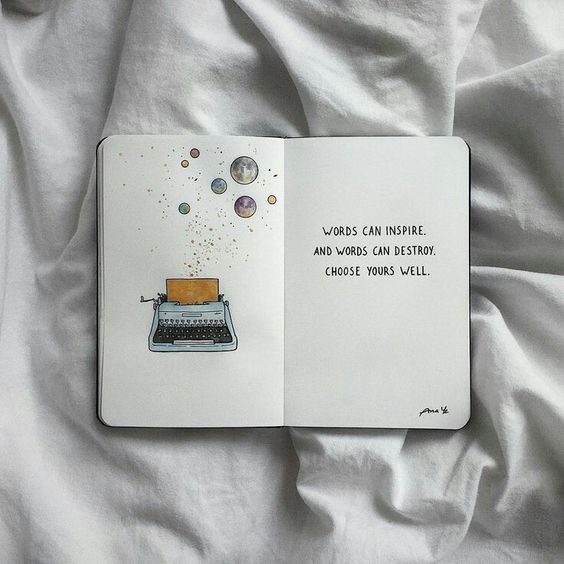 WORDS CAN INSPIRE.
AND WORDS CAN DESTROY.
CHOOSE YOURS WELL.